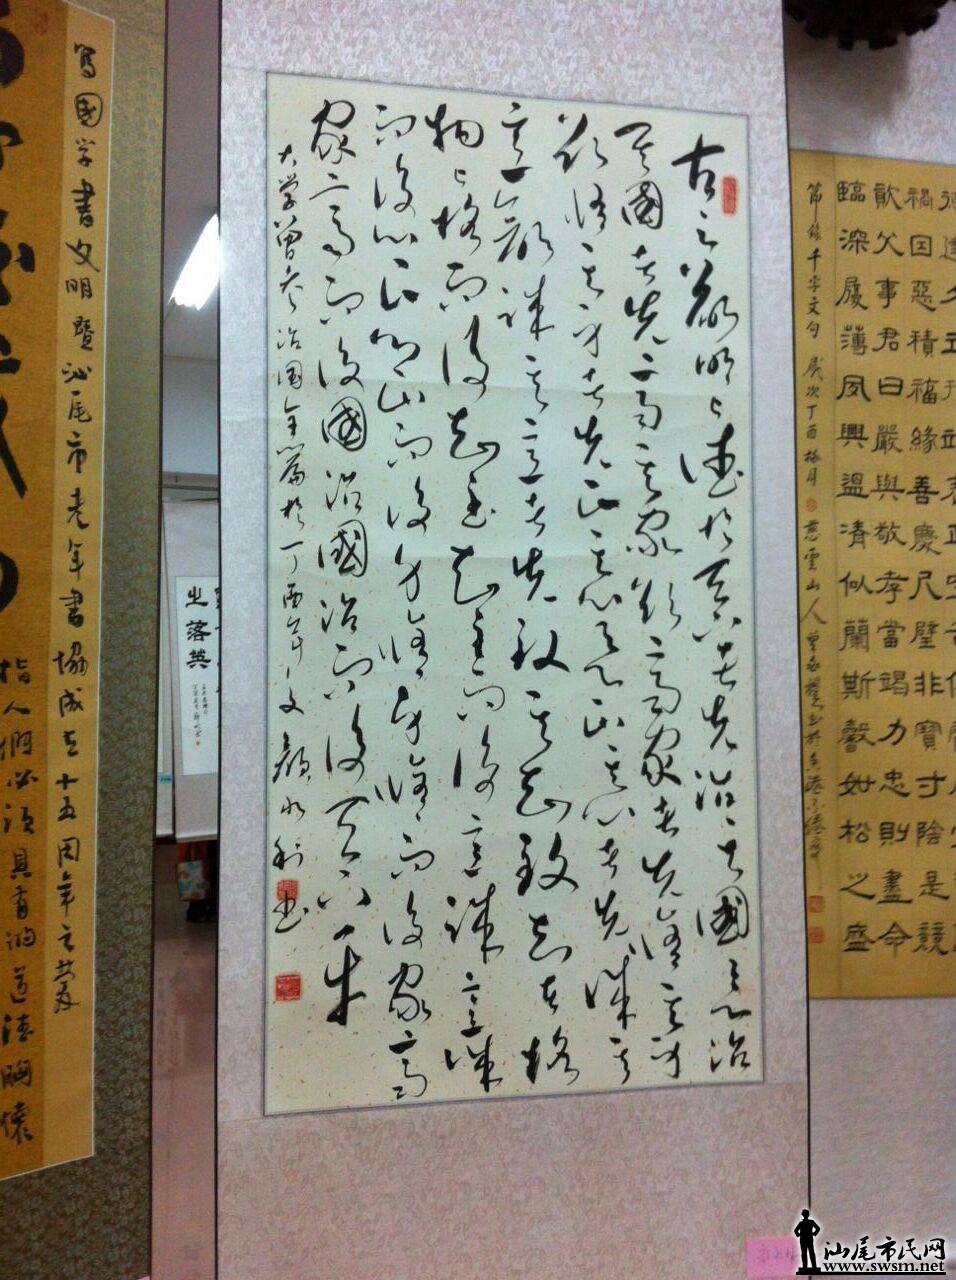 禍因惡積福緣善慶尺璧非寶寸陰是競
資父事君曰嚴與敬孝當竭力忠則盡命
臨深履薄夙興溫清似蘭斯馨如松之盛
節錄千字文句 歲次丁酉梅月 慈雲山人
古之欲明明德於天下者先治其國欲治
其國者先齊其家欲齊其家者先修其身
欲修其身者先正其心欲正其心者先誠其
意欲誠其意者先致其知致知在格
物物格而後知至知至而後意誠意誠
而後心正心正而後身修身修而後家齊
家齊而後國治國治而後天下平
大學曾參治國全篇於丁酉年之文 顏永利書
之落英
寫國学書文明暨汕尾市老年書協成立十五周年之慶
指人們必須具有的道德胸懷
汕尾市民网
www.swsm.net